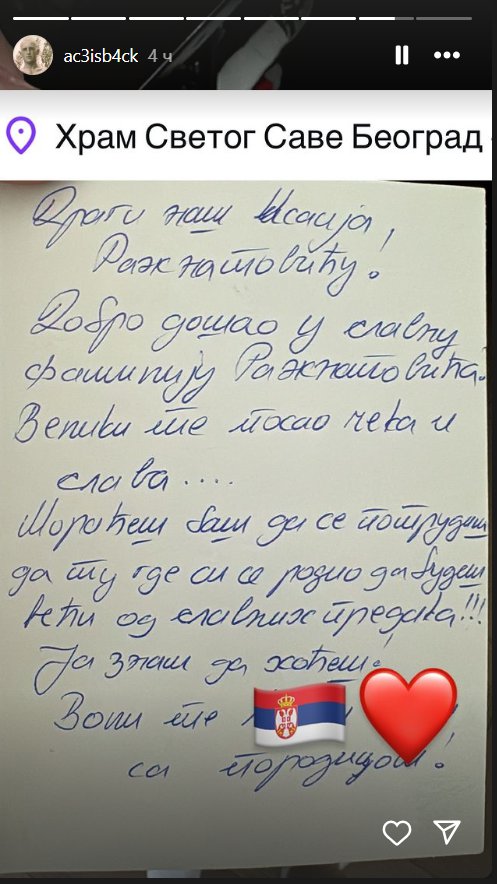 ac3isb4ck 4 ч
Храм Светог Саве Београд
Драги наш Исаија
Ражнатовићу!
Добро дошао у славну
фамилију Ражнатовића.
Велики те посао чека и
слава....
Мораћеш баш да се потрудиш
да ту где си се родио да будеш
већи од славних предака!!!
Ја знам да хоћеш!
Воли те
са породицом!